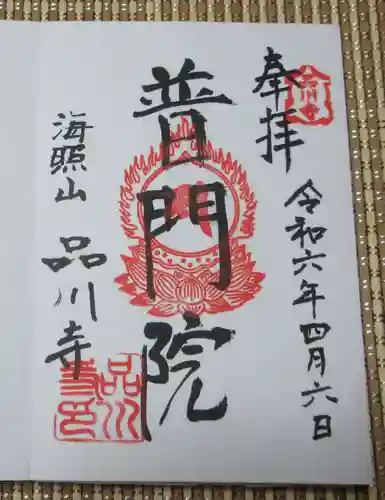 奉拝
令和六年四月六日
普門院
海照山
品川寺